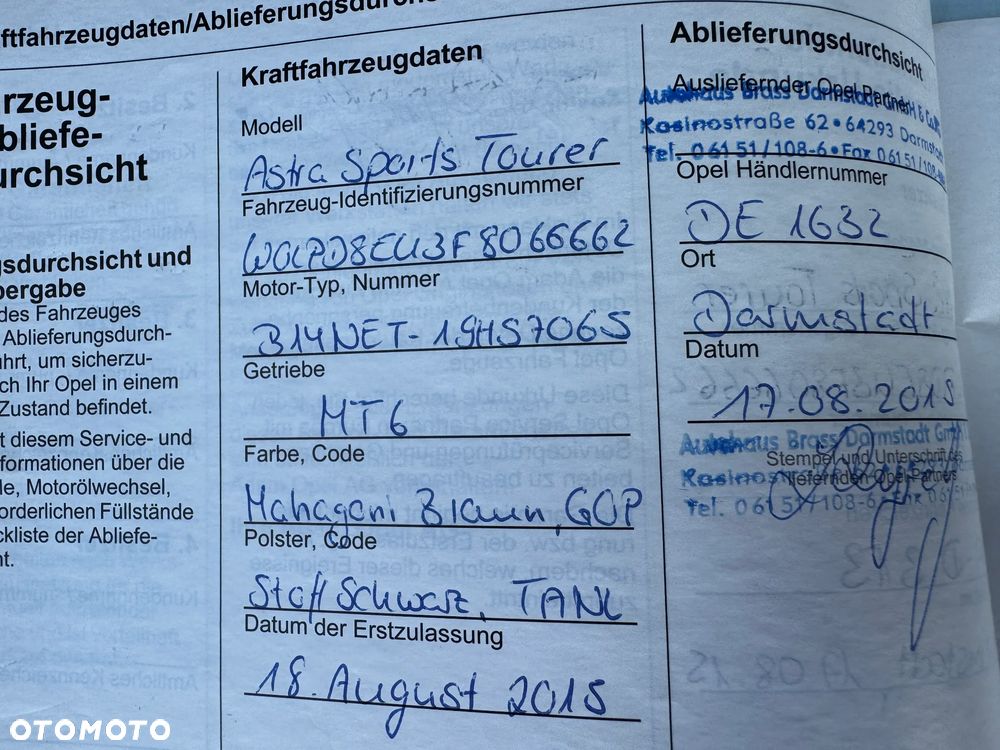 ftfahrzeugdaten/Ablieferungsdurchs
rzeug-
bliefe-
urchsicht
gsdurchsicht und
bergabe
des Fahrzeuges
Ablieferungsdurch-
ührt, um sicherzu-
ch Ihr Opel in einem
Zustand befindet.
t diesem Service- und
nformationen über die
le, Motorölwechsel,
forderlichen Füllstände
ckliste der Abliefe-
ht.
Kraftfahrzeugdaten
Modell
Astra Sports Tourer
Fahrzeug-Identifizierungsnummer
W0LPD8EU3F8066662
Motor-Typ, Nummer
B14NET-19HS7065
Getriebe
MT6
Farbe, Code
Mahagoni Braun, GOP
Polster, Code
Stoff Schwarz, TANL
Datum der Erstzulassung
18. August 2015
Ablieferungsdurchsicht
Ausliefernder Opel Partner
Autohaus Brass Darmstadt GmbH & Co.
Kasinostraße 62 • 64293 Darmstadt
Tel. 06151/108-6 • Fax 06151/108-
Opel Händlernummer
DE 1632
Ort
Darmstadt
Datum
17.08.2015
Autohaus Brass Darmstadt GmbH
Stempel und Unterschrift des
Kasinos
liefernden Opel-Partners
Tel. 06151/108-6 • Fax 0615
OTOMOTO